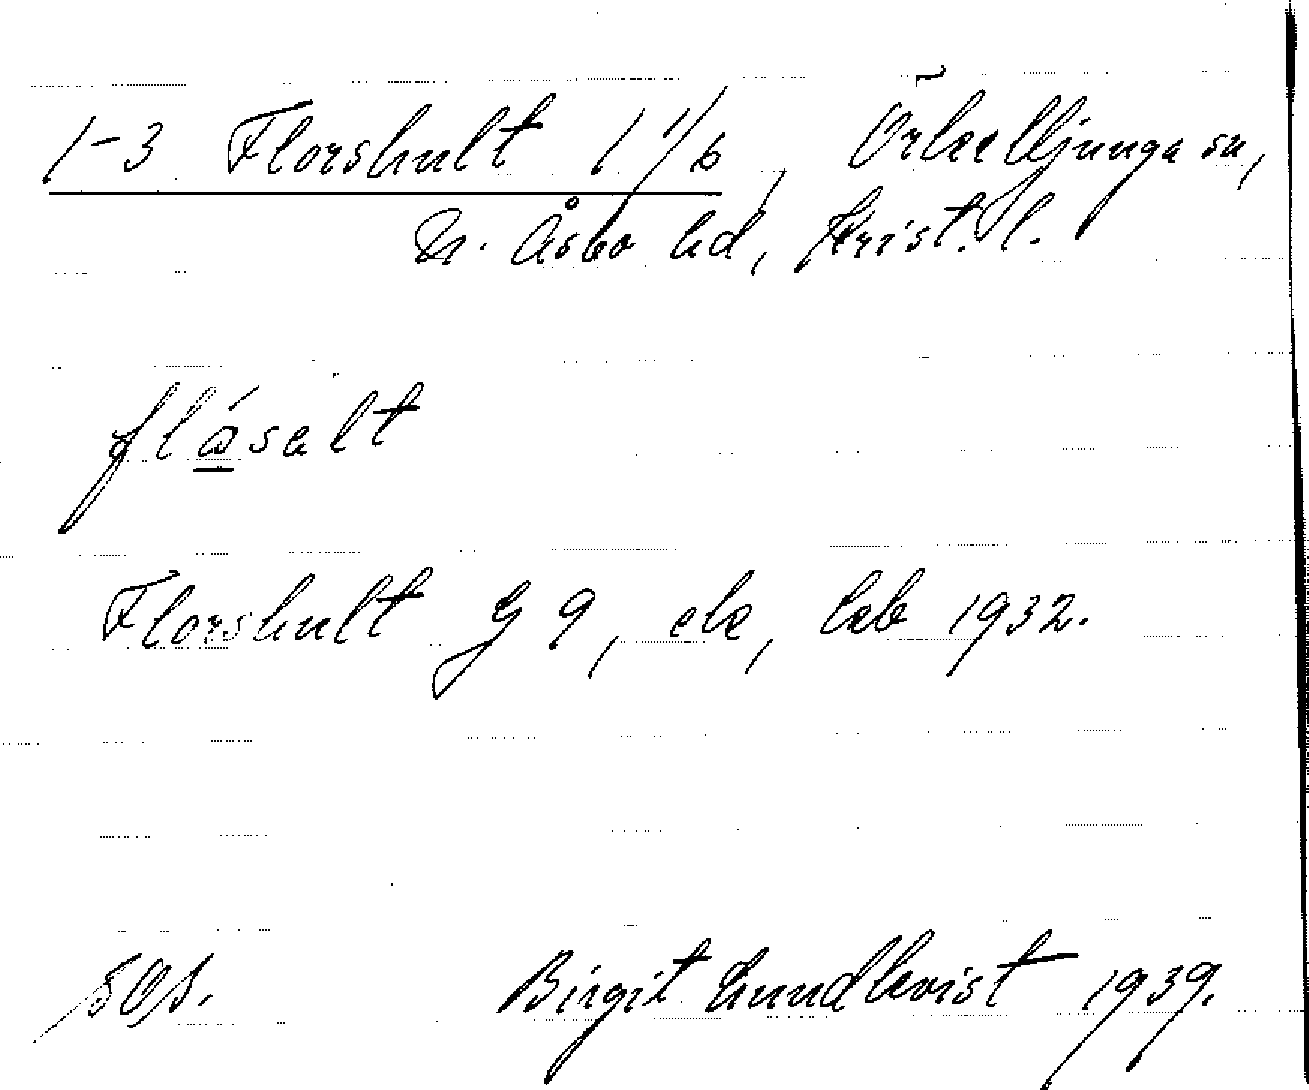 1-3 Florshult 1 1/6, Örkelljunga sn,
N. Åsbo hd, Krist. l.
flåsalt
Florshult G 9, ek, lkb 1932.
Birgit Lundkvist 1939.